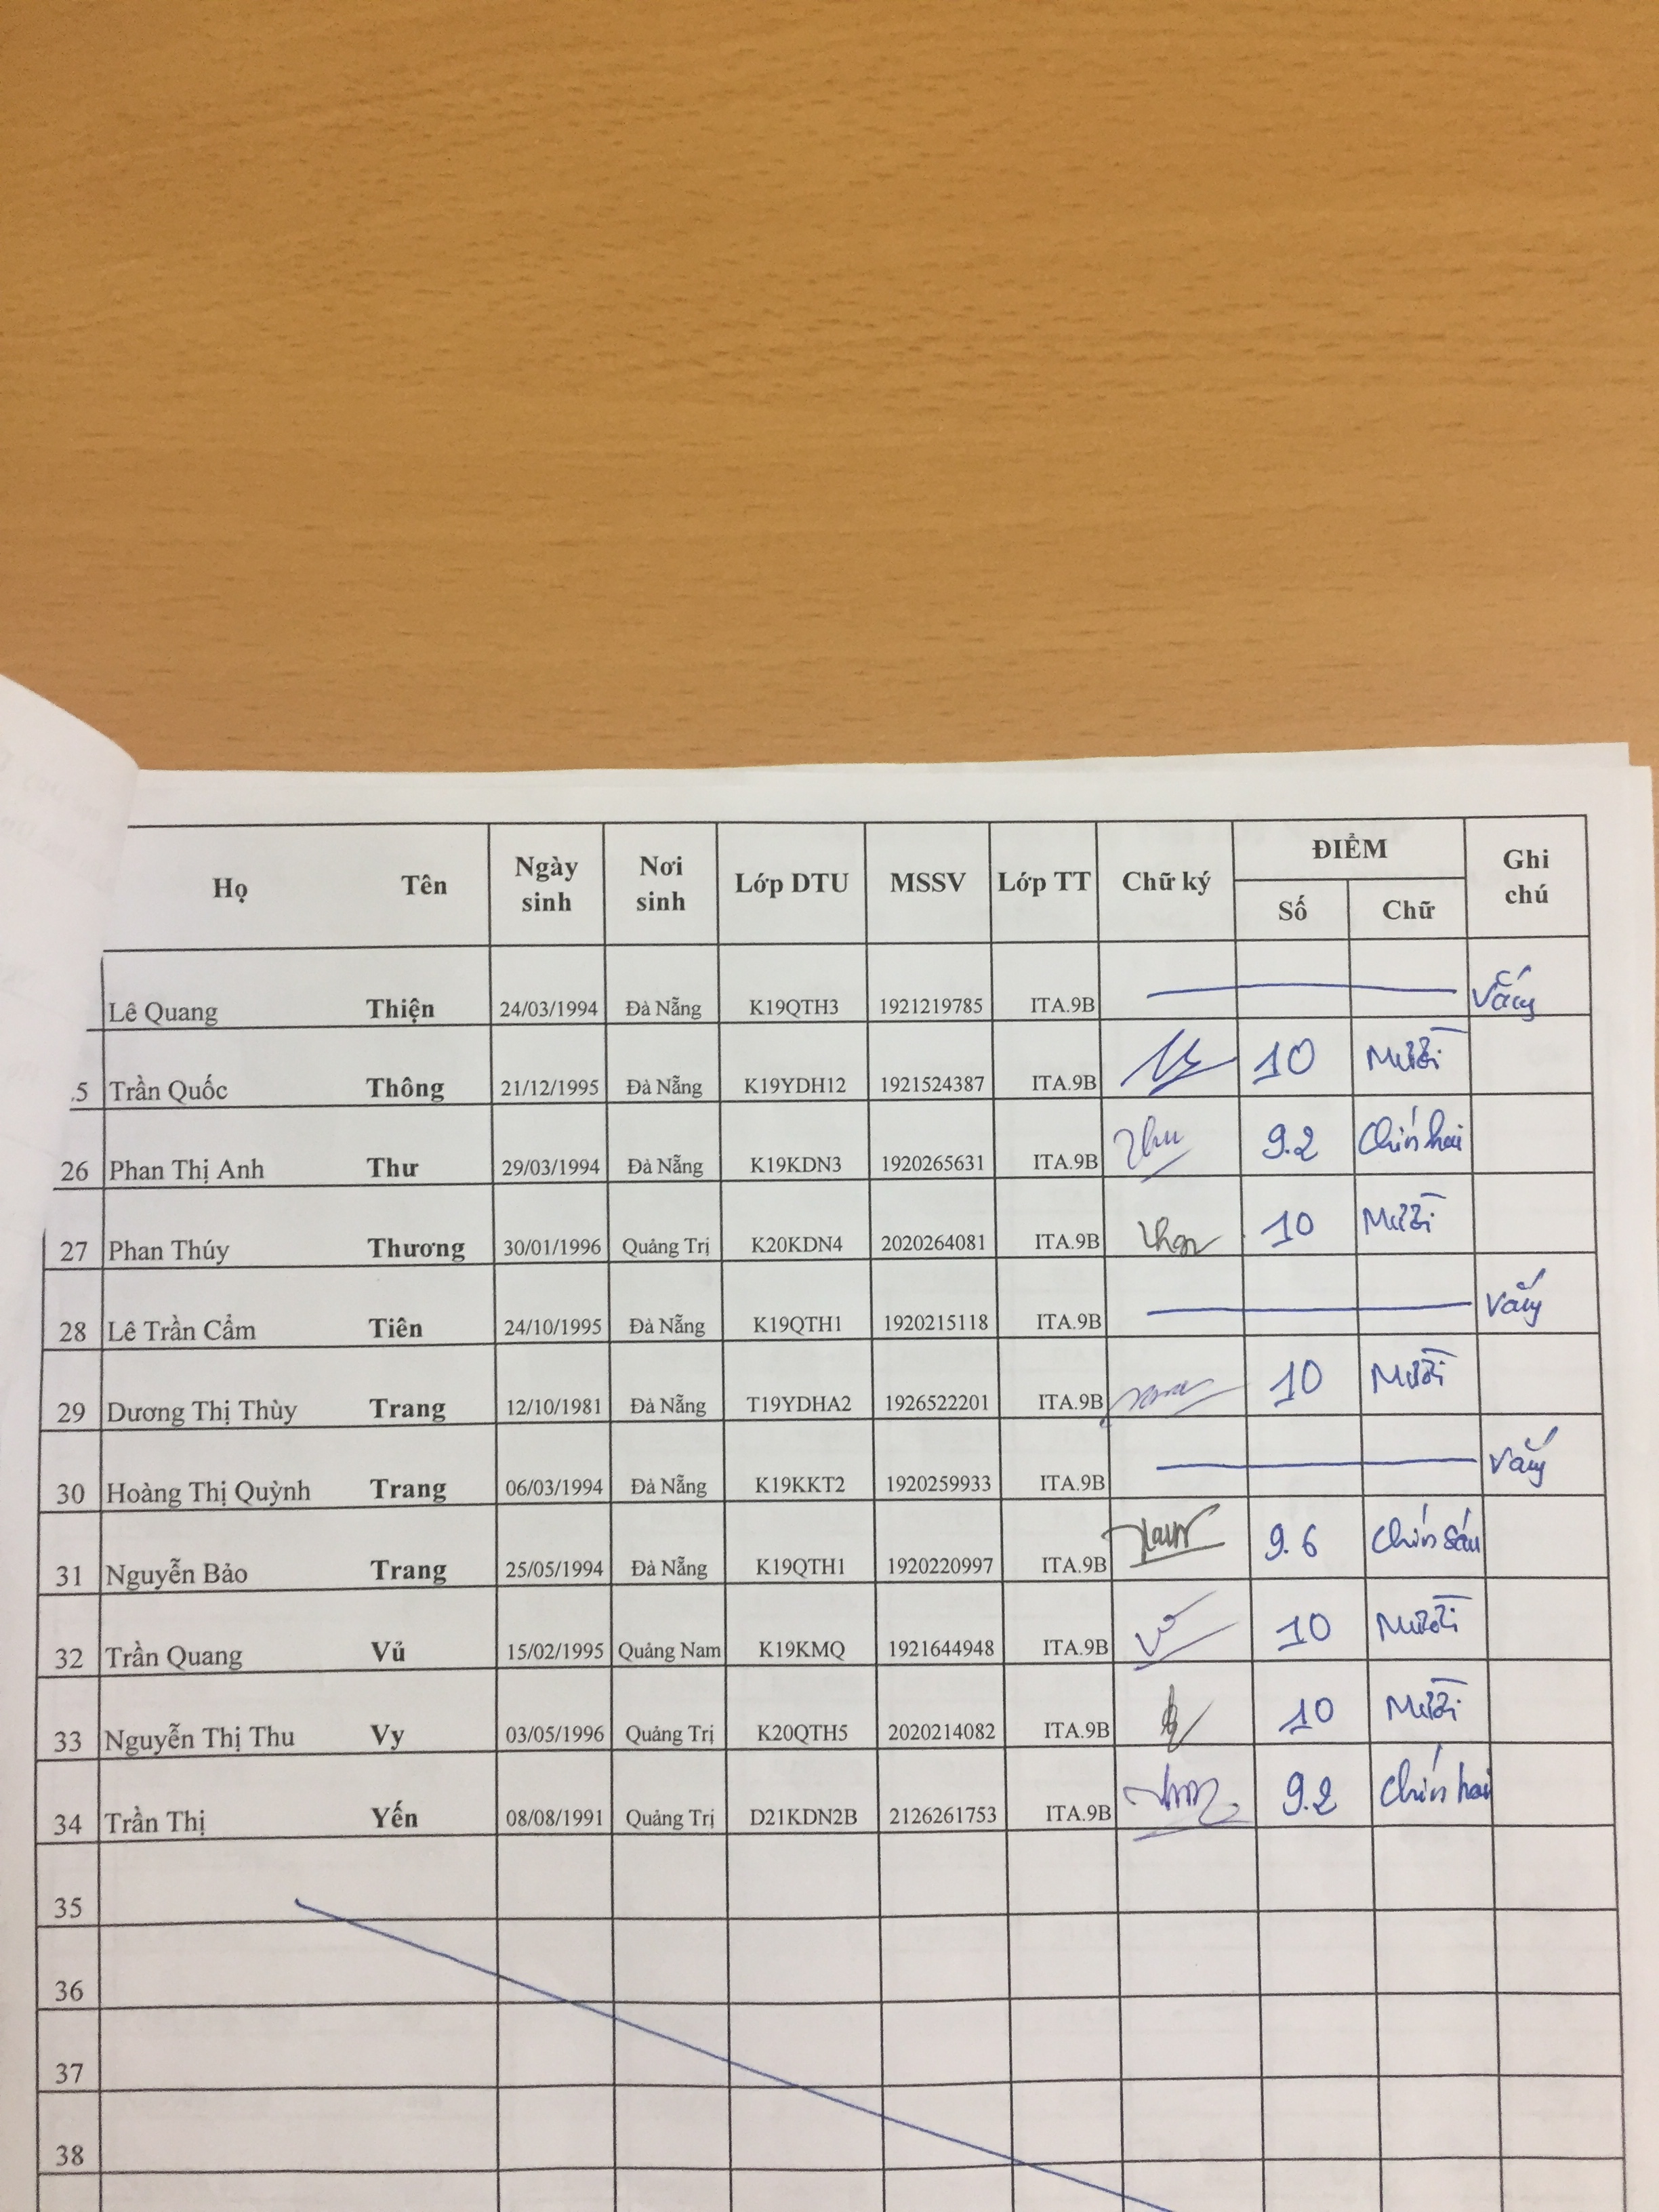 Họ Tên Ngày sinh Nơi sinh Lớp DTU MSSV Lớp TT Chữ ký ĐIỂM Số Chữ Ghi chú
Lê Quang Thiện 24/03/1994 Đà Nẵng K19QTH3 1921219785 ITA.9B Vắng
5 Trần Quốc Thông 21/12/1995 Đà Nẵng K19YDH12 1921524387 ITA.9B 10 Mười
26 Phan Thị Anh Thư 29/03/1994 Đà Nẵng K19KDN3 1920265631 ITA.9B Thu 9.2 Chín hai
27 Phan Thúy Thương 30/01/1996 Quảng Trị K20KDN4 2020264081 ITA.9B 10 Mười
28 Lê Trần Cẩm Tiên 24/10/1995 Đà Nẵng K19QTH1 1920215118 ITA.9B Vắng
29 Dương Thị Thùy Trang 12/10/1981 Đà Nẵng T19YDHA2 1926522201 ITA.9B 10 Mười
30 Hoàng Thị Quỳnh Trang 06/03/1994 Đà Nẵng K19KKT2 1920259933 ITA.9B Vắng
31 Nguyễn Bảo Trang 25/05/1994 Đà Nẵng K19QTH1 1920220997 ITA.9B 9.6 Chín sáu
32 Trần Quang Vủ 15/02/1995 Quảng Nam K19KMQ 1921644948 ITA.9B 10 Mười
33 Nguyễn Thị Thu Vy 03/05/1996 Quảng Trị K20QTH5 2020214082 ITA.9B 10 Mười
34 Trần Thị Yến 08/08/1991 Quảng Trị D21KDN2B 2126261753 ITA.9B 9.2 Chín hai
35
36
37
38